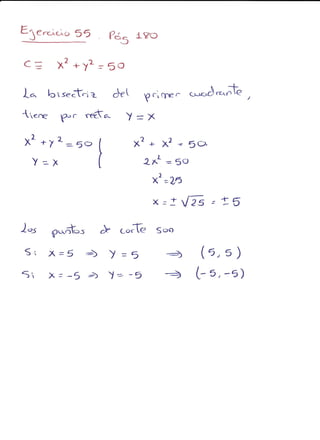 Ejercicio 55. Pág 180
C ≡ x² + y² = 50
La bisectriz del primer cuadrante,
tiene por recta y = x
x² + y² = 50 | x² + x² = 50
y = x | 2x² = 50
x² = 25
x = ± √25 = ± 5
Los puntos de corte son
Si x = 5 ⇒ y = 5 ⇒ (5, 5)
Si x = -5 ⇒ y = -5 ⇒ (-5, -5)